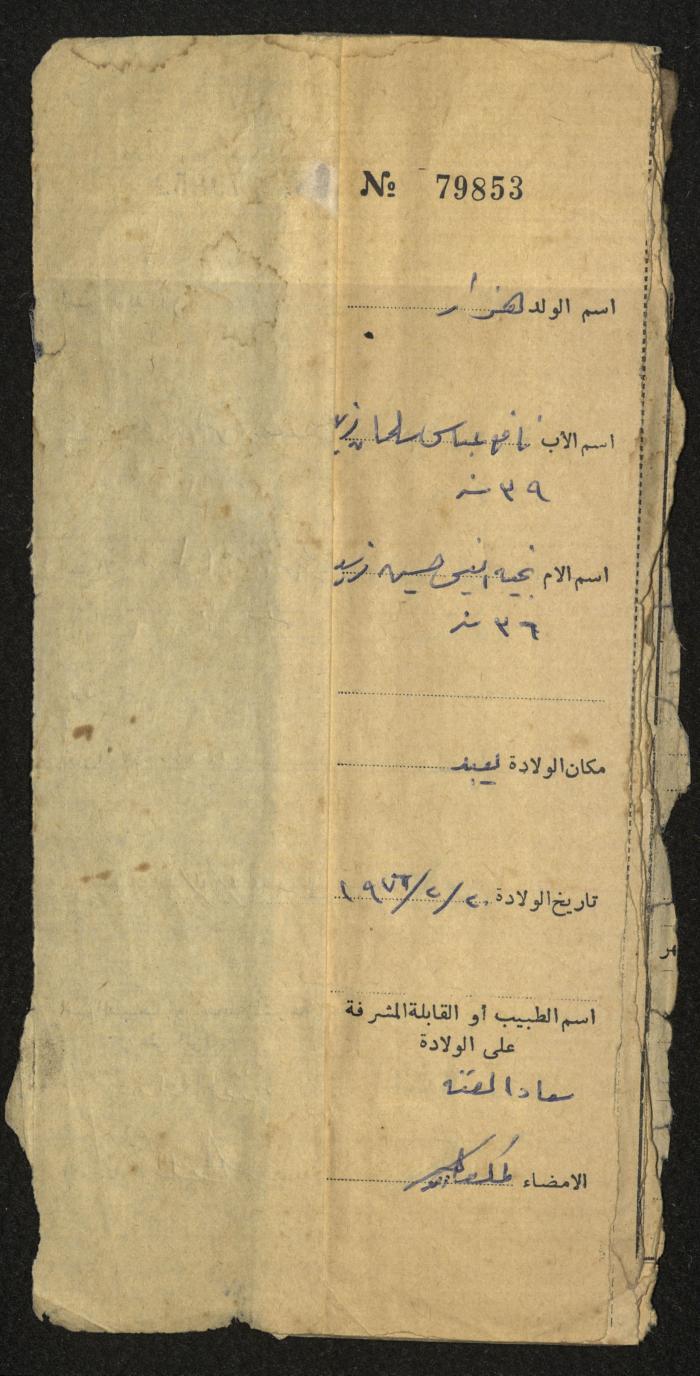 № 79853
اسم الولد هزار
اسم الأب نافع عباس سلمان زيد
٣٩ سنة
اسم الام نجيه حسين زيد
٣٦ سنة
مكان الولادة يعبد
تاريخ الولادة ٢٠/٢/١٩٧٦
اسم الطبيب أو القابلة المشرفة
على الولادة
سعاد
الامضاء